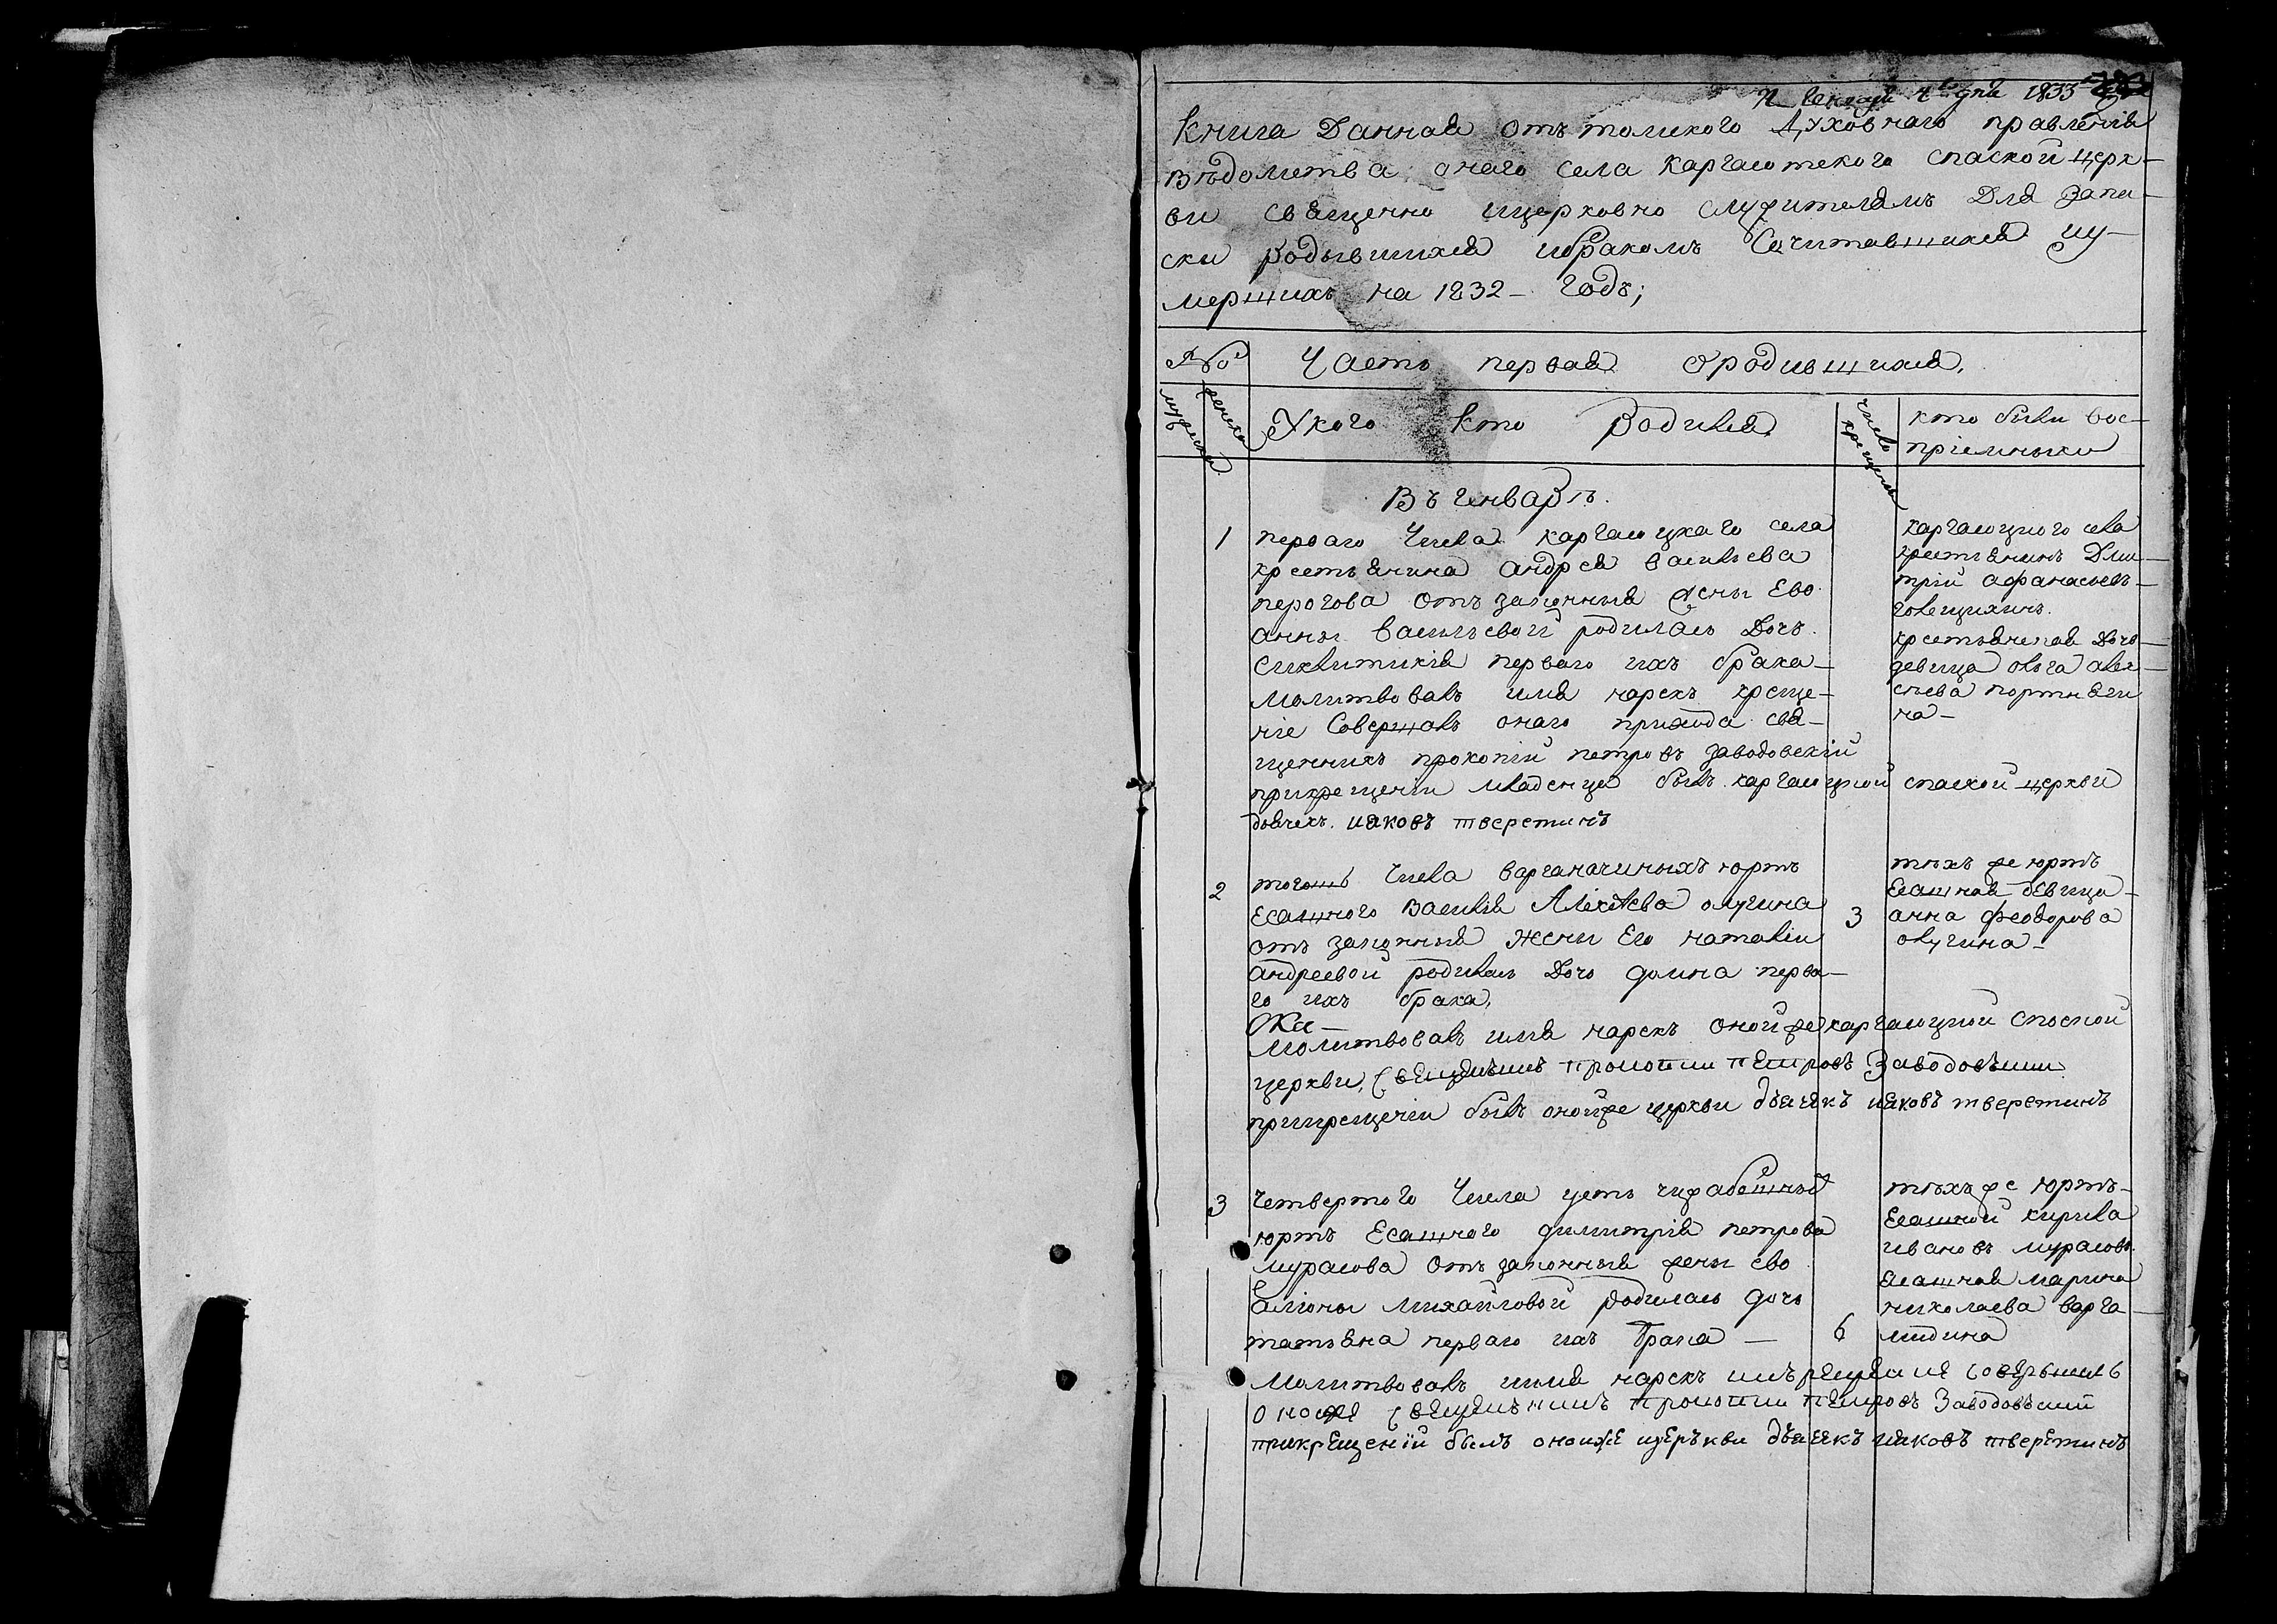 1833
Книга Данная отъ томского Духовнаго правленія
вѣдомства онаго села Каргасотского спаской церк-
ви священно ицерковно служителямъ Для Запи-
ски родывшихся ибракомъ Сочитавшихся иу-
мершихъ на 1832- годъ;
№
Часть первая Ородившихся,
мужеска
женска
Укого кто Родился
число крещенія
кто были вос-
пріемники
Въ Генварѣ.
1
перваго Числа каргасоцкаго села
крестьянина андрея васильева
перогова Отъ законныя жены Ево
анны Васильевой родилась Дочь
Сиклитикія перваго ихъ брака-
Молитвовалъ имя нарекъ креще-
ніе Совершалъ онаго прихода свя-
щенникъ прокопій петровъ Заводовскій
прикрещеніи младенца былъ каргасоцкой спаской церкви
дьячекъ. иаковъ тверетинъ
каргасоцкого села
крестьянинъ Дми-
трій афанасьевъ-
голещихинъ.
крестьянская Дочь-
девица ольга алек-
сиева портняги
на-
2
тогошъ Числа варганачиныхъ юртъ
Есашного Василія Алексѣева олугина
отъ законныя жены Его наталіи
андреевой родилась Дочь домна перва-
го ихъ брака,
Молитвовалъ имя нарекъ онойже каргасоцкой спаской
церкви, священникъ прокопии пЕтровъ Заводовъкии
прикрещеніи былъ онойже церкви дьячекъ иаковъ тверетинъ
3
тѣхъ же юртъ
Есашная девица-
анна феодорова
олугина-
3
Четвертого Числа усть чижабешныя
юртъ Есашного димитрія петрова
мурасова Отъ законныя жены ево
алюны михайловой родилась дочь
татьяна перваго ихъ брака -
Молитвовалъ имя нарекъ икърещеніе совЕръшилъ
оноеже священникъ прокопии пЕтровъ Заводовъкий
прикрЕщеніи былъ оноижЕ цЕръкви дьячекъ иаковъ тверЕтинъ
6
тѣхъже юртъ-
Есашной кирила
ивановъ мурасовъ.
Есашная марина
николаева варга-
мидина